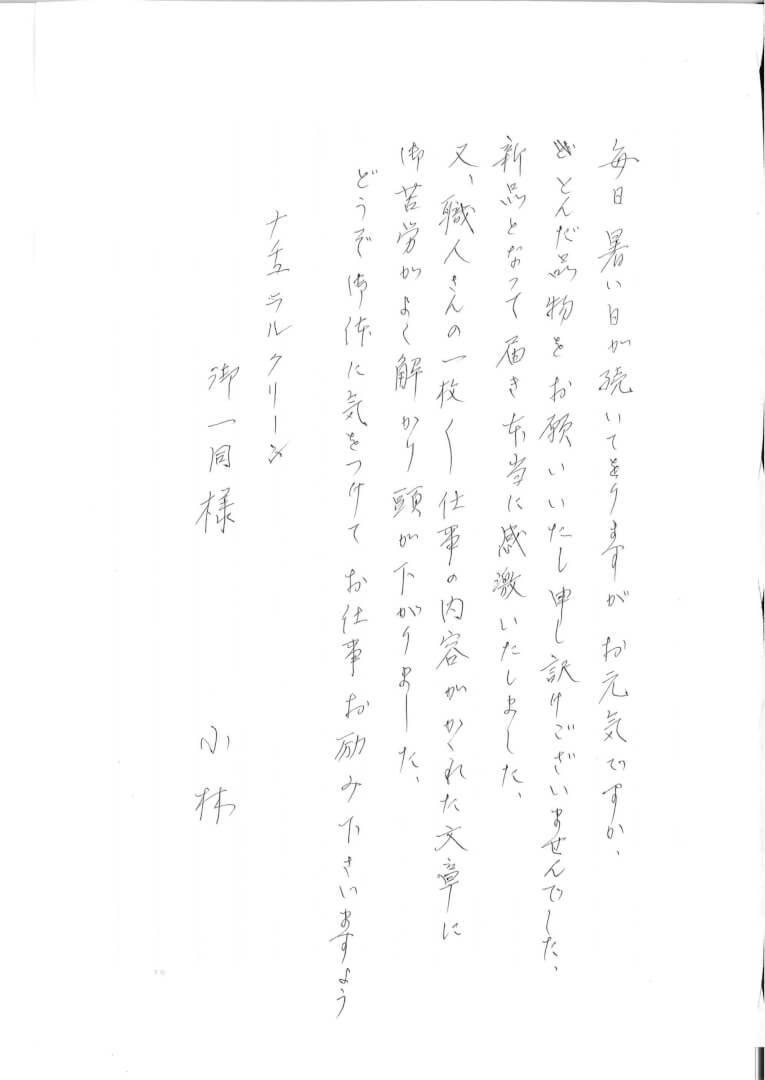 毎日暑い日が続いてをりますがお元気ですか、
とんだ品物をお願いいたし申し訳けございませんでした、
新品となって届き本当に感激いたしました、
又、職人さんの一枚〱仕事の内容がかかれた文章に
御苦労がよく解かり頭が下がりました、
どうぞ御体に気をつけてお仕事お励み下さいますよう
ナチュラルクリーン
御一同様
小林